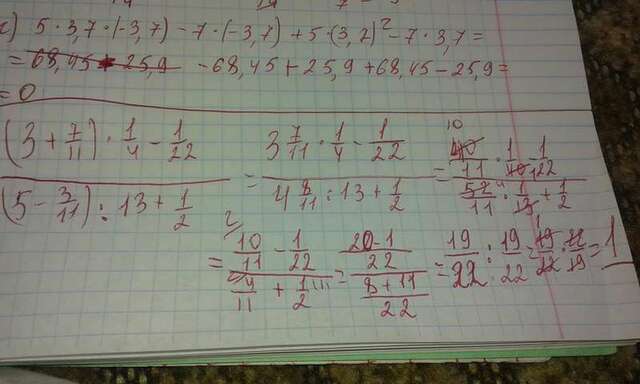 c) 5 · 3,7 · (-3,7) - 7 · (-3,7) + 5 · (3,7)² - 7 · 3,7 =
= 68,45 + 25,9 - 68,45 + 25,9 + 68,45 - 25,9 =
= 0
(3 + 7/11) · 1/4 - 1/22 / (5 - 3/11) : 13 + 1/2 = 3 7/11 · 1/4 - 1/22 / 4 8/11 : 13 + 1/2 = 10 40/11 · 1/40 - 1/22 / 52/11 · 1/13 + 1/2
= 10/11 - 1/22 / 4/11 + 1/2 = 20-1/22 / 8+11/22 = 19/22 : 19/22 = 19/22 · 22/19 = 1